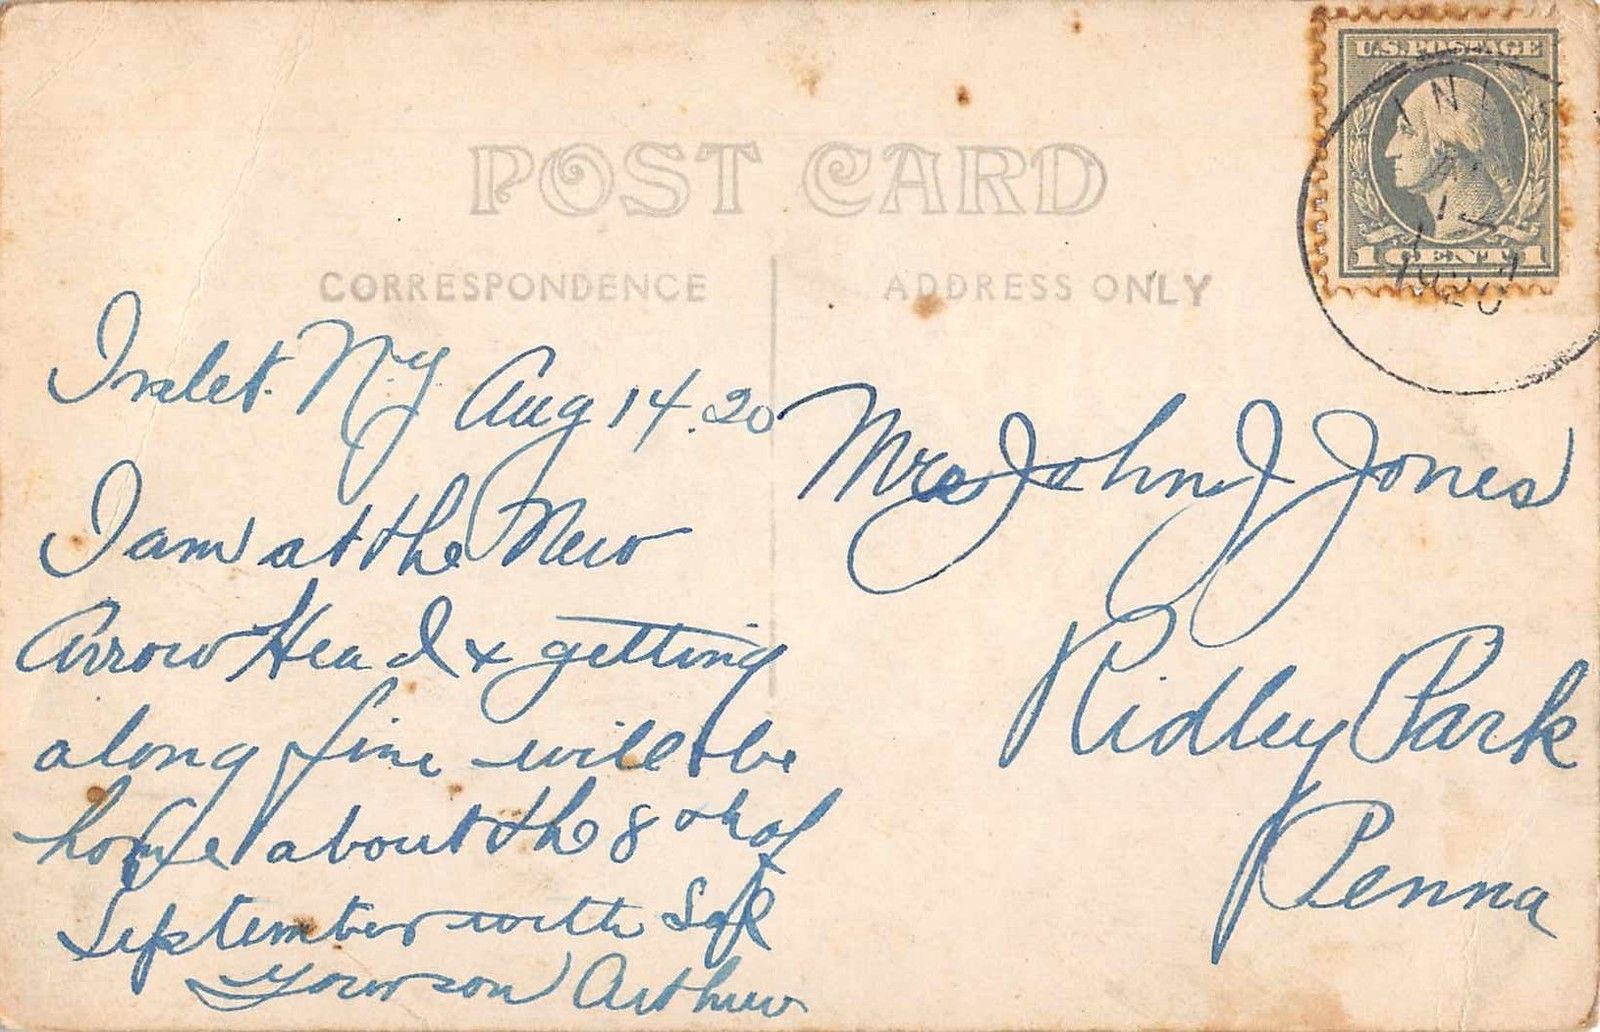 U.S. POSTAGE
1 CENT 1
POST CARD
CORRESPONDENCE
ADDRESS ONLY
Inlet. N.Y. Aug 14.20
I am at the New
Arrow Head & getting
along fine will be
home about the 8th of
September with
Your son Arthur
Mrs John J. Jones
Ridley Park
Penna